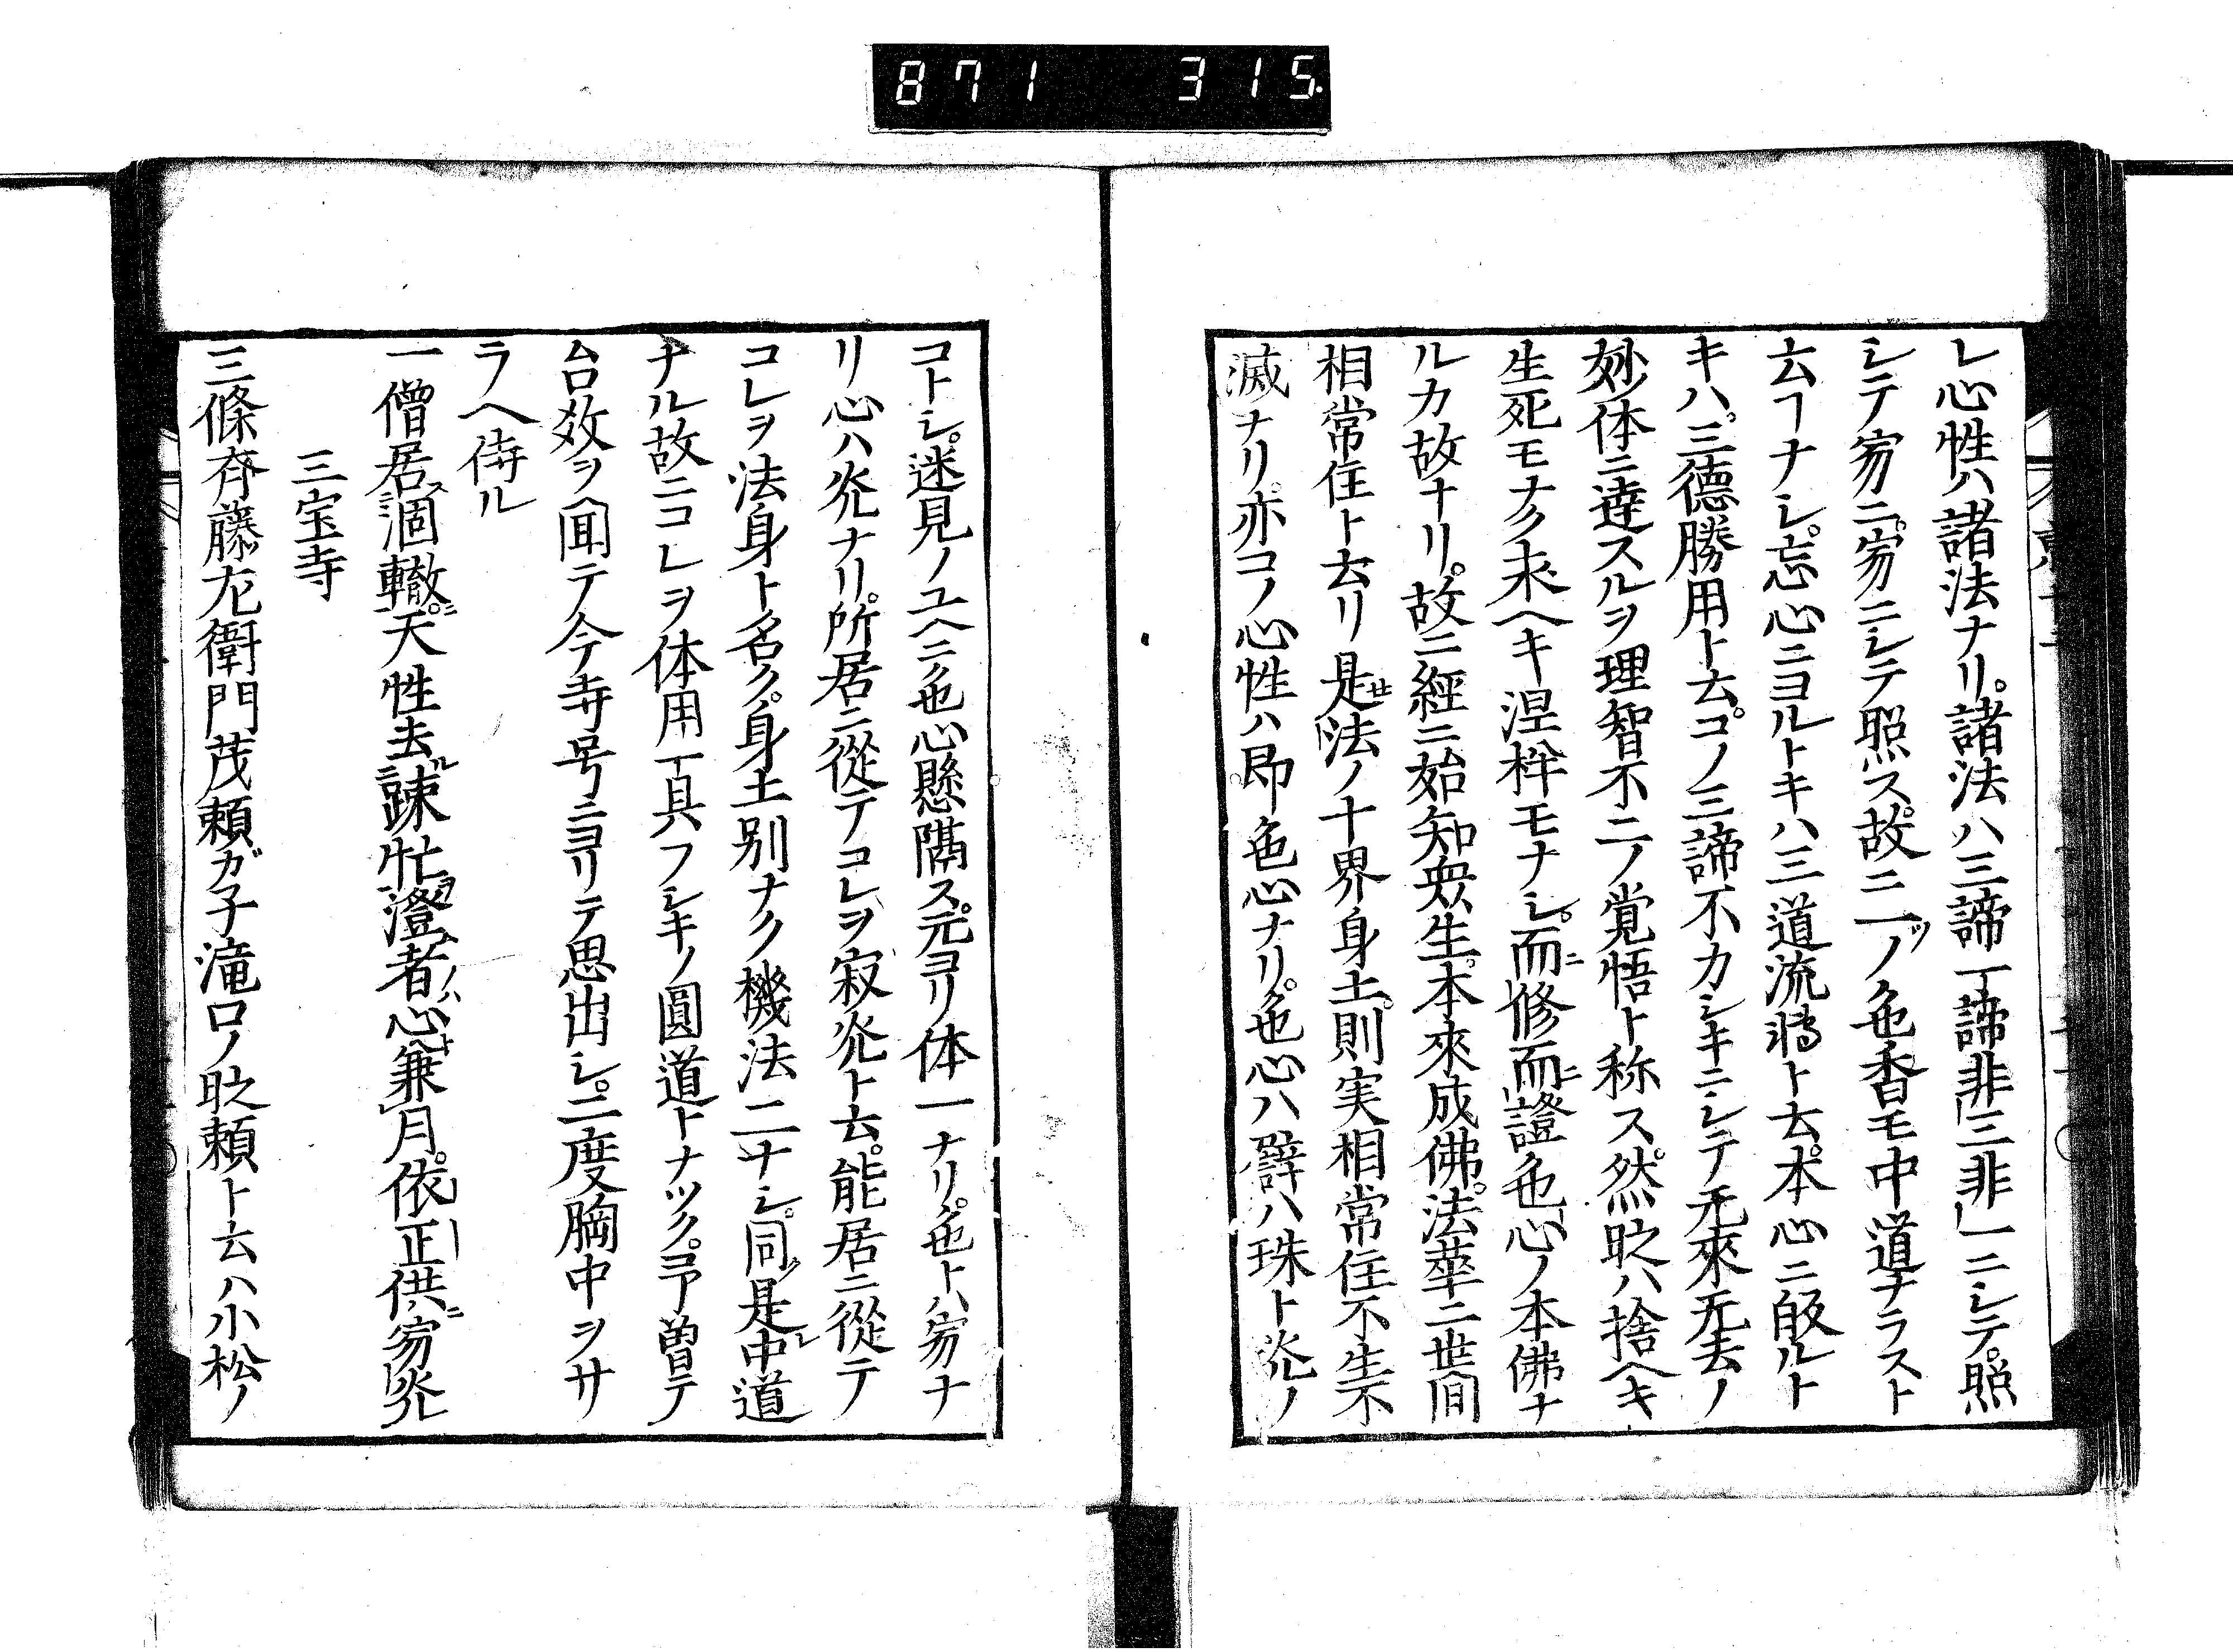 871 315.
レ心性ハ諸法ナリ。諸法ハ三諦丁諦非三非一ニシテ。照
シテ寂ニ。寂ニシテ照ス。故ニ一ツノ色香モ中道ナラスト
云フナシ。忘心ニヨルトキハ三道流轉ト云。本心ニ皈ルト
キハ。三徳勝用ト云。コノ三諦不カシキニシテ无來无去ノ
妙体ニ達スルヲ理智不二ノ覚悟ト称ス。然レハ捨ヘキ
生死モナク求ヘキ涅槃モナシ。而ニ修而ニ證色心ノ本佛ナ
ルカ故ナリ。故ニ經ニ始知衆生。本來成佛。法華ニ世間
相常住ト云リ是セ法ノ十界身土。則実相常住不生不
滅ナリ。亦コノ心性ハ即。色心ナリ。色心ハ譬ハ珠ト光ノ
コトシ。迷見ノユヘニ色心懸隔ス。元ヨリ体一ナリ。色トハ寂ナ
リ心ハ光ナリ。所居ニ從テコレヲ寂光ト云。能居ニ從テ
コレヲ法身ト名ク。身土別ナク機法二ナシ。同ク是レ中道
ナル故ニコレヲ体用丁具フシキノ圓道トナツク。ヨア曽テ
台教ヲ聞テ今寺号ニヨリテ思出シ。二度胸中ヲサ
ラヘ侍ル
一僧居ス涸轍ニ。天性去ル疎忙澄者ノハ心兼月。依正供ニ寂光
三宝寺
三條斉藤左衛門茂頼ガ子滝口ノ時頼ト云ハ小松ノ